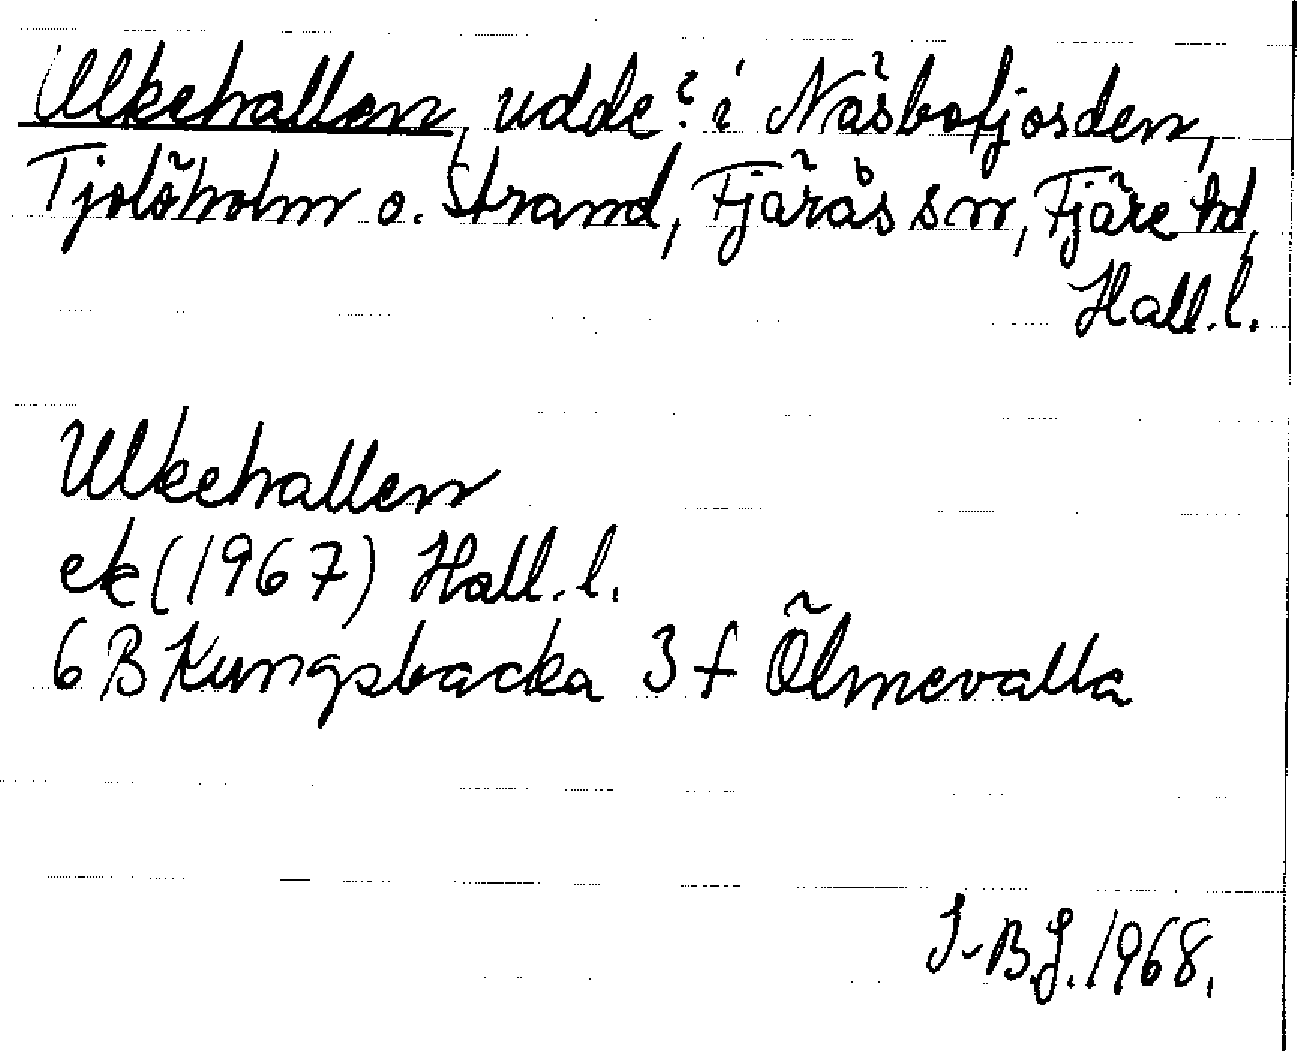 Ulkehallen, udde? i Näsbofjorden,
Tjolöholm o. Strand, Fjärås sn, Fjäre hd,
Hall.l.
Ulkehallen
ek (1967) Hall.l.
6 B Kungsbacka 3 f Ölmevalla
I-B.J. 1968.